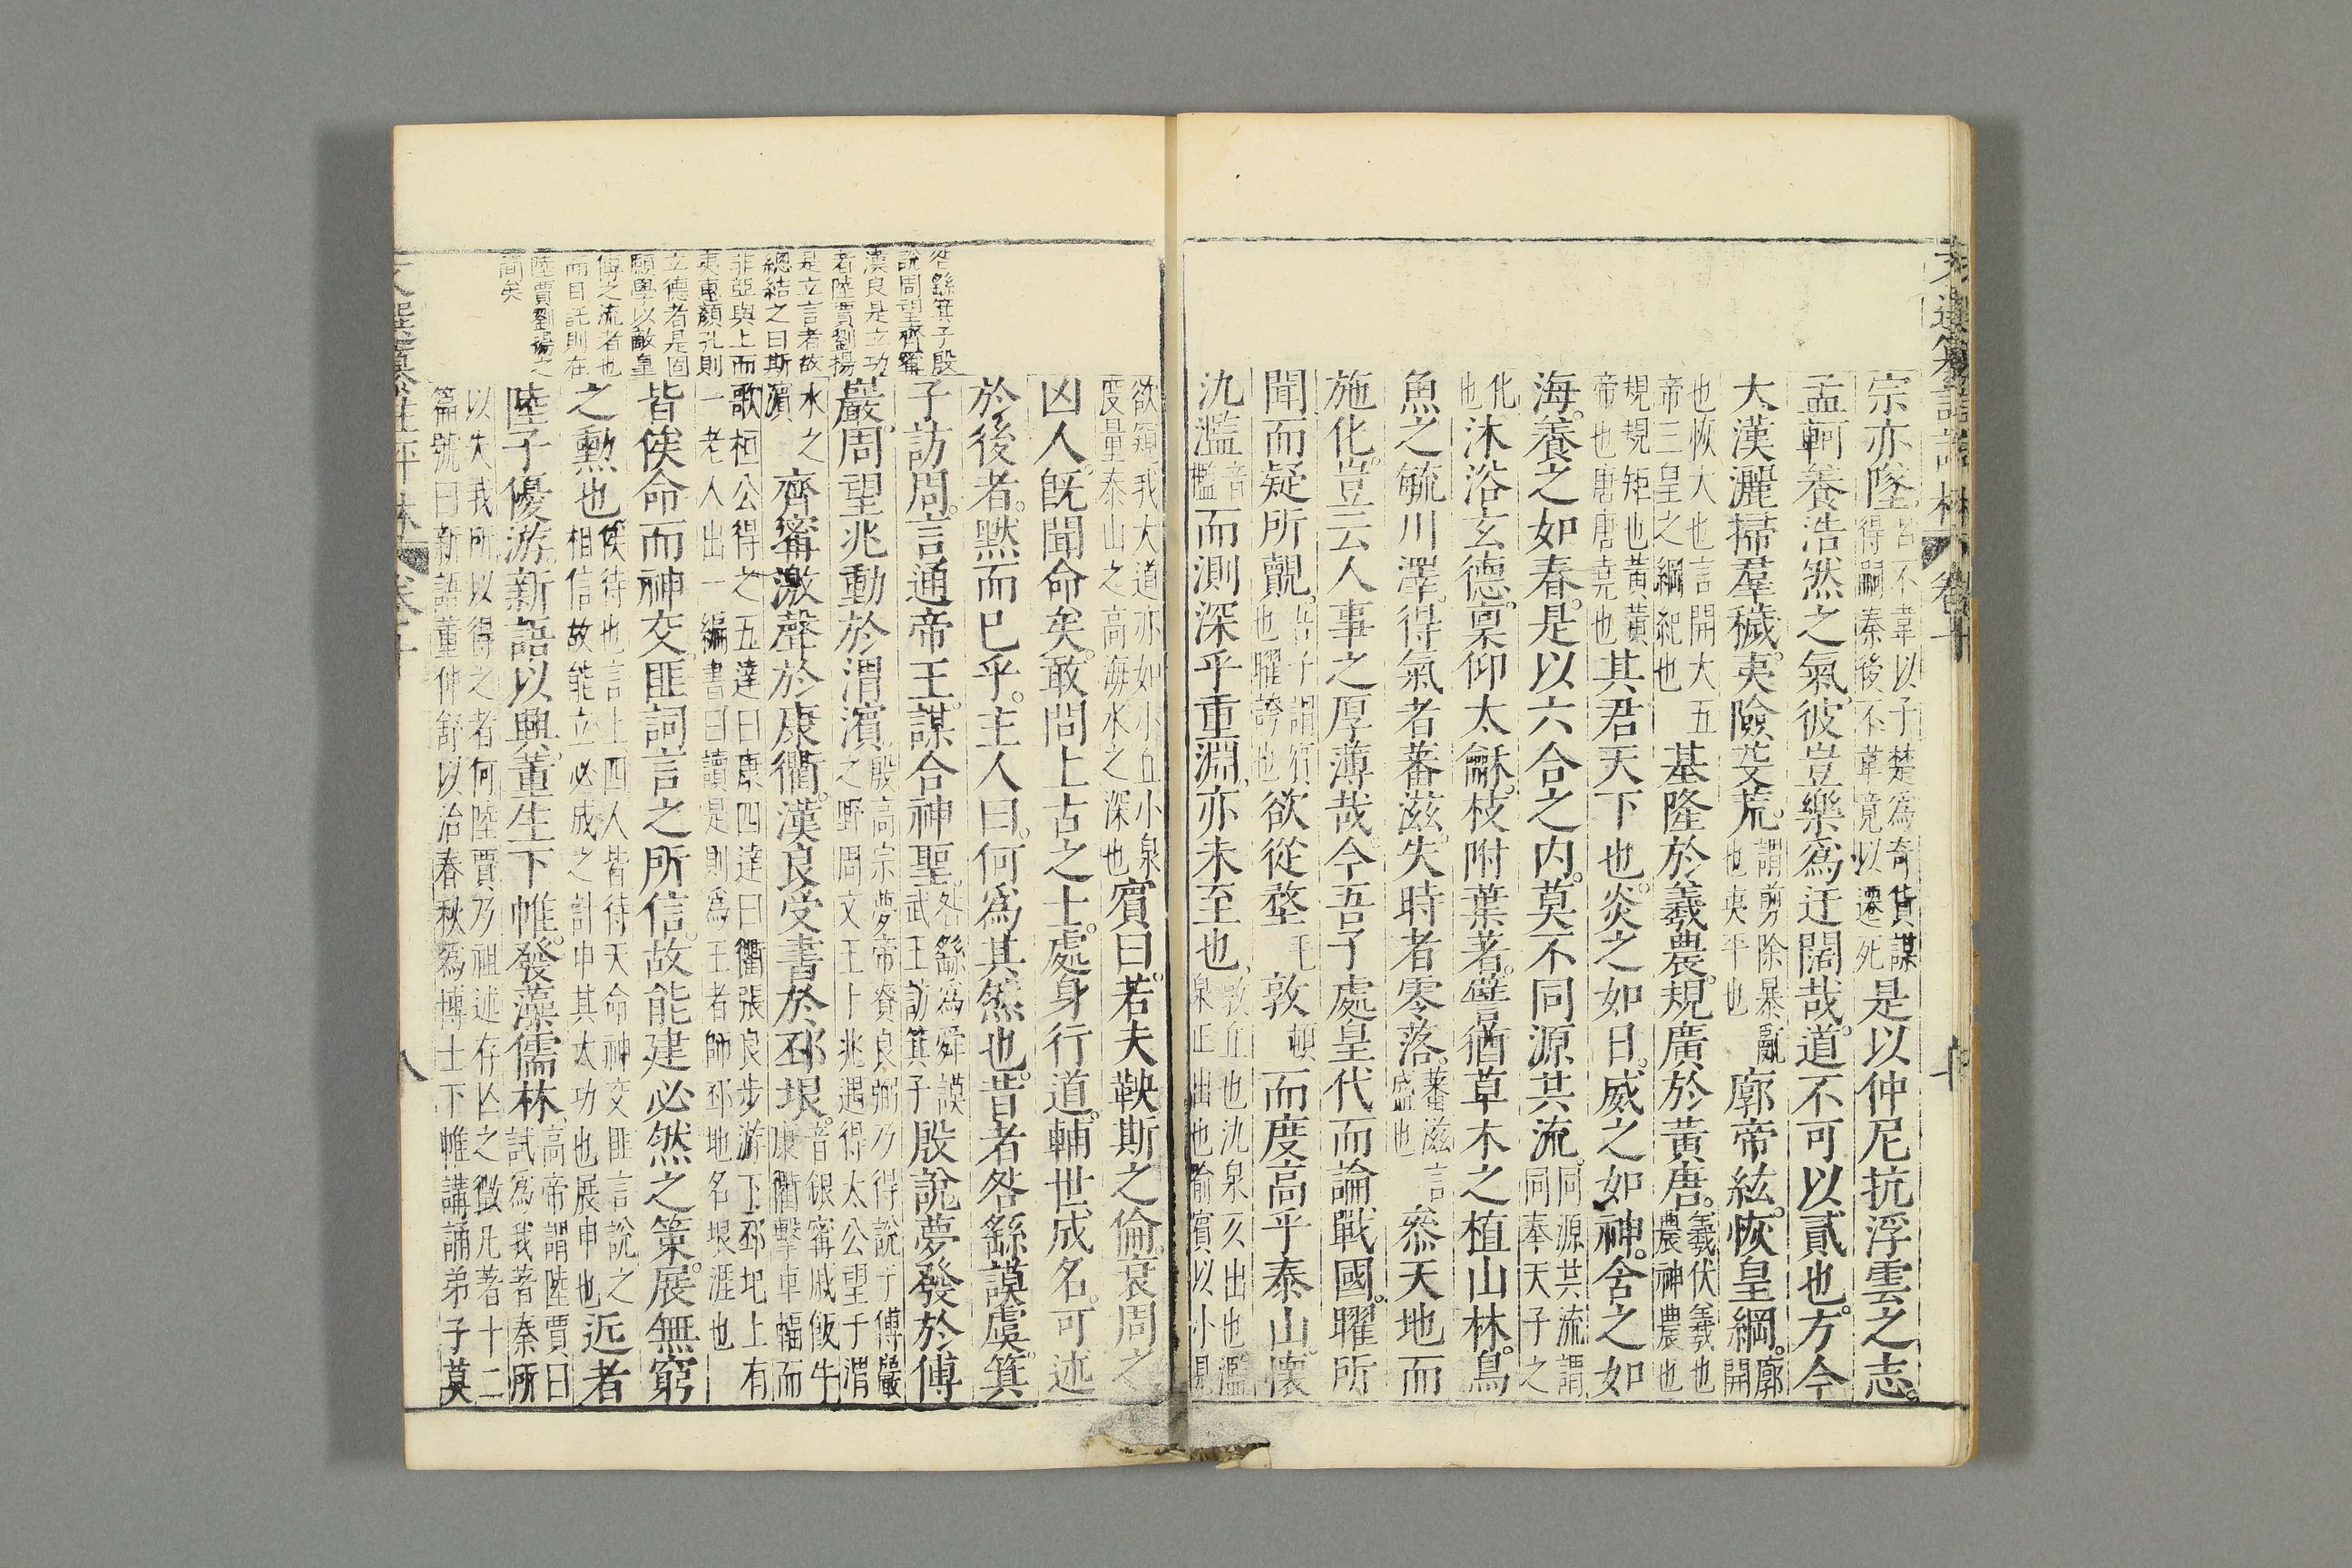 文選纂註評林 卷十
宗亦墜呂不韋以子楚為奇貨謀得嗣秦後不韋竟以遷死是以仲尼抗浮雲之志
孟軻養浩然之氣彼豈樂為迂闊哉道不可以貳也方今
大漢灑掃羣穢夷險芟荒謂剪除暴亂也夷平也廓帝紘恢皇綱廓開
也恢大也言開大五帝三皇之綱紀也基隆於羲農規廣於黃唐羲伏羲也農神農也
規規矩也黃黃帝也唐唐堯也其君天下也炎之如日威之如神舍之如
海養之如春是以六合之内莫不同源共流同源共流謂同奉天子之
化也沐浴玄德稟仰太龢枝附葉著譬猶草木之植山林鳥
魚之毓川澤得氣者蕃滋失時者零落蕃滋言盛也叅天地而
施化豈云人事之厚薄哉今吾子處皇代而論戰國曜所
聞而疑所覿吾子謂賓也曜誇也欲從堥毛敦頓而度高乎泰山懷
氿濫音檻而測深乎重淵亦未至也敦丘也氿泉仄出也濫泉正出也喻賓以小見
欲窺我大道亦如小丘小泉度量泰山之高海水之深也賓曰若夫鞅斯之倫衰周之
凶人旣聞命矣敢問上古之士處身行道輔世成名可述
於後者黙而已乎主人曰何為其然也昔者咎繇謨虞箕
子訪周言通帝王謀合神聖咎繇為舜謨武王訪箕子殷說夢發於傅
巖周望兆動於渭濱殷高宗夢帝賚良弼乃得說于傅巖之野周文王卜兆遇得太公望于渭
水之濱齊甯激聲於康衢漢良受書於邳垠音銀甯戚飯牛康衢擊車輻而
歌桓公得之五達曰康四達曰衢張良步游下邳圯上有一老人出一編書曰讀是則為王者師邳地名垠涯也
皆俟命而神交匪詞言之所信故能建必然之策展無窮
之勲也俟待也言上四人皆待天命神交匪言說之相信故能立必成之計申其大功也展申也近者
陸子優游新語以興董生下帷發藻儒林高帝謂陸賈曰試為我著秦所
以失我所以得之者何陸賈乃祖述存亡之徵凡著十二篇號曰新語董仲舒以治春秋為博士下帷講誦弟子莫
咎繇箕子殷
說周望齊甯
漢良是立功
者陸賈劉揚
是立言者故
總結之曰斯
非亞與上而
夷惠顏孔則
立德者是固
願學以敵皇
傅之流者也
而自託則在
陸賈劉揚之
間矣
八